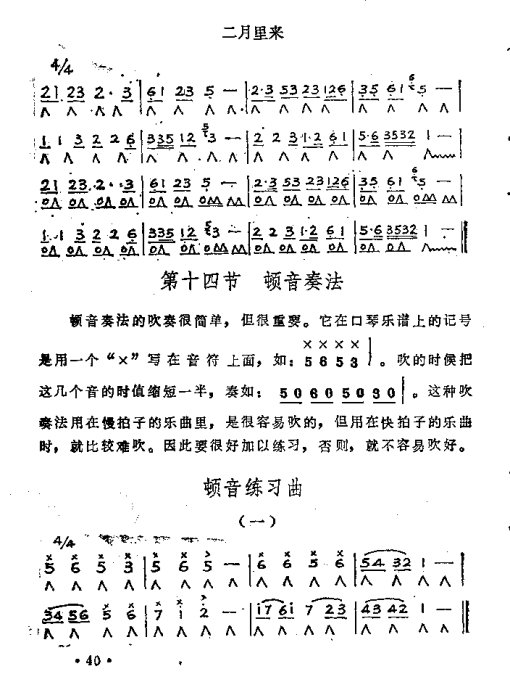 二月里来
4/4
21 23 2· 3 | 61 23 5 — | 2·3 53 23 126 | 35 61 5 — |
∧ ∧ ∧ ∧ ∧ ∧ ∧ ∧ ∧ ∧ ∧ ∧ ∧ ∧ ∧ ∧
1·1 3 2 2 6 | 335 1 2 3 — | 2 2 3·2 61 | 5·6 3532 1 — |
21 23 2· 3 | 61 23 5 — | 2·3 53 23 126 | 35 61 5 — |
1·1 3 2 2 6 | 335 12 3 — | 2 2 3 1·2 61 | 5·6 3532 1 — ‖
第十四节 顿音奏法
顿音奏法的吹奏很简单，但很重要。它在口琴乐谱上的记号
是用一个“×”写在音符上面，如：5 6 5 3 | 。吹的时候把
× × × ×
这几个音的时值缩短一半，奏如：5 0 6 0 5 0 3 0 | 。这种吹
奏法用在慢拍子的乐曲里，是很容易吹的，但用在快拍子的乐曲
时，就比较难吹。因此要很好加以练习，否则，就不容易吹好。
顿音练习曲
（一）
4/4
5 6 5 3 | 5 6 5 — | 6 6 5 6 | 54 32 1 — |
∧ ∧ ∧ ∧ ∧ ∧ ∧ ∧ ∧ ∧ ∧ ∧ ∧ ∧ ∧ ∧
34 56 5 6 | 7 i 2 — | 17 61 7 23 | 43 42 1 — ‖
∧ ∧ ∧ ∧ ∧ ∧ ∧ ∧ ∧ ∧ ∧ ∧ ∧ ∧ ∧ ∧
·40·